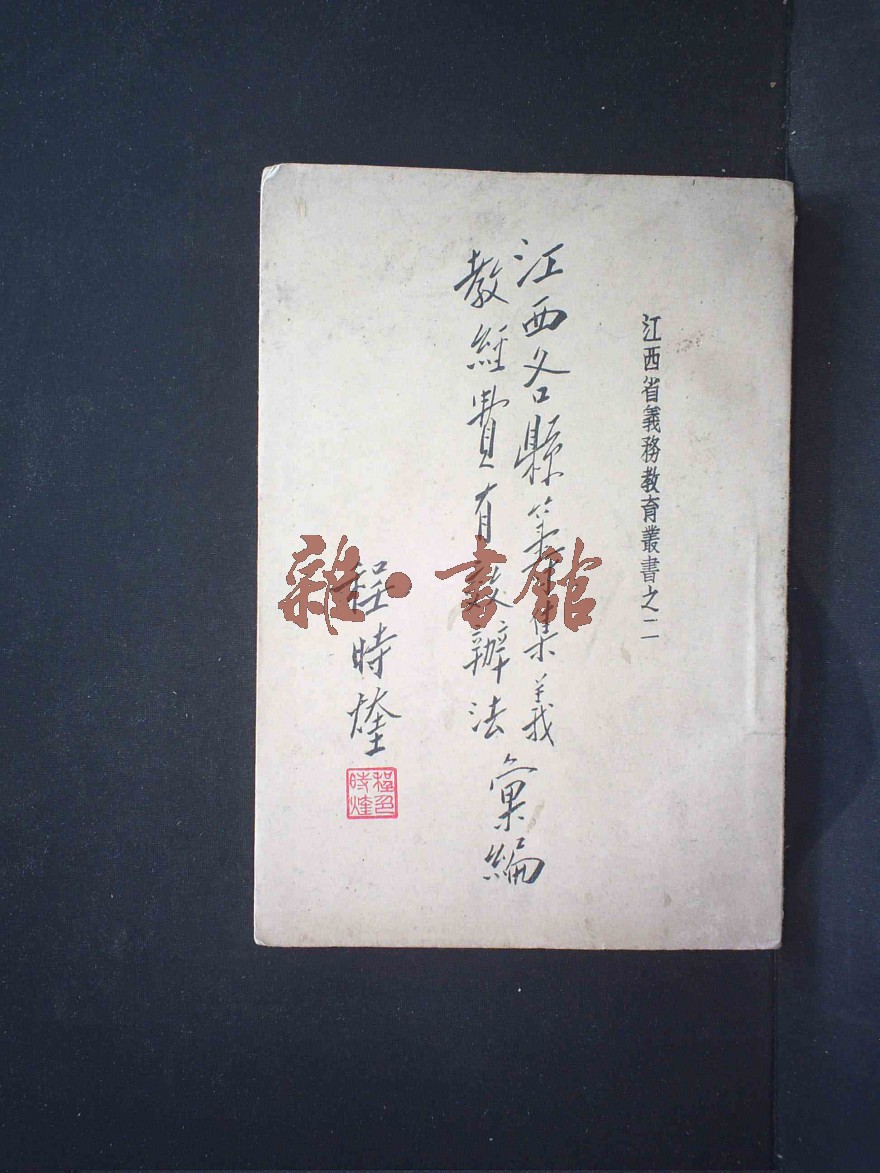 江西省義務教育叢書之二
江西各縣籌集義
教經費有效辦法
彙編
程時煃
程時煃
雜·書館